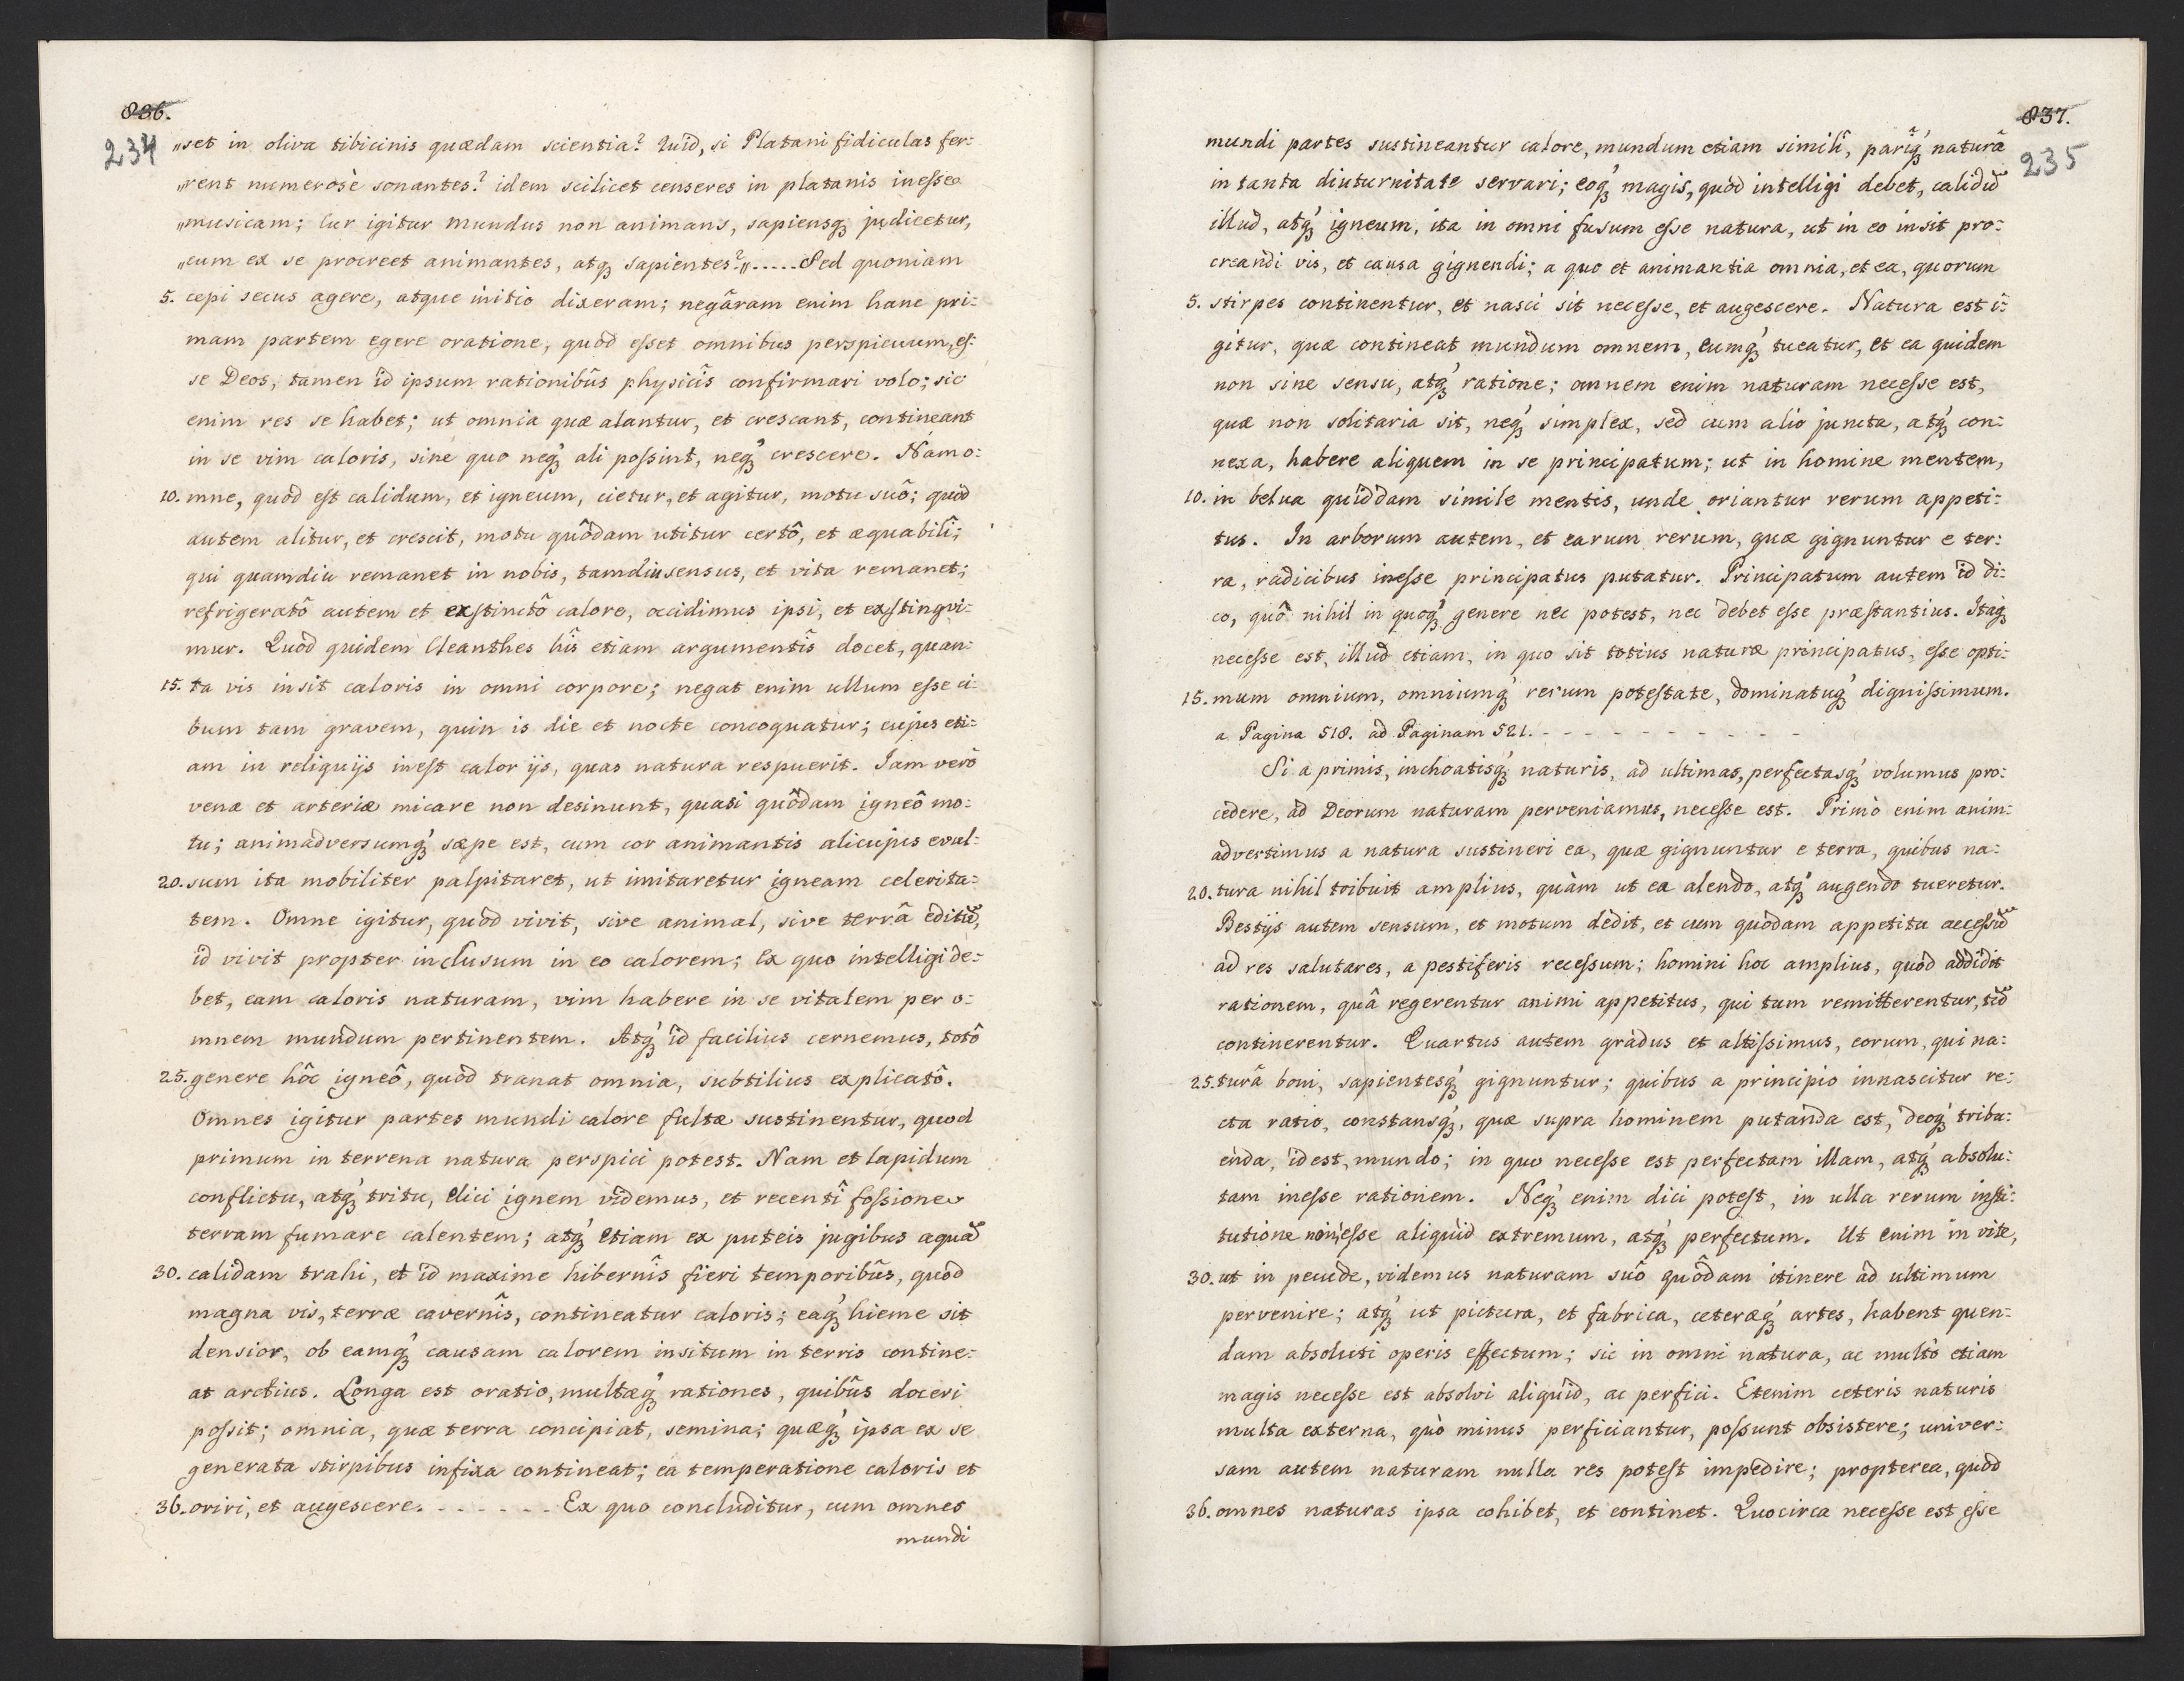 836.
234
„set in oliva tibicinis quædam scientia? Quid, si Platani fidiculas fer=
„rent numerosè sonantes? idem scilicet censeres in platanis inesse
„musicam; Cur igitur mundus non animans, sapiensq́ue judicetur,
„cum ex se procreet animantes, atq́ue sapientes?„.....Sed quoniam
5. cepi secus agere, atque initio dixeram; negâram enim hanc pri=
mam partem egere oratione, quòd esset omnibus perspicuum, es=
se Deos, tamen id ipsum rationibûs physicîs confirmari volo; sic
enim res se habet; ut omnia quæ alantur, et crescant, contineant
in se vim caloris, sine quo neq́ue ali possint, neq́ue crescere. Nam o=
10. mne, quod est calidum, et igneum, cietur, et agitur, motu suô; quod
autem alitur, et crescit, motu quôdam utitur certô, et æquabilî;
qui quamdiu remanet in nobis, tamdiu sensus, et vita remanet;
refrigeratô autem et exstinctô calore, occidimus ipsi, et exstingvi=
mur. Quod quidem Cleanthes hîs etiam argumentîs docet, quan=
15. ta vis insit caloris in omni corpore; negat enim ullum esse ci=
bum tam gravem, quin is die et nocte concoquatur; cujus eti=
am in reliquijs inest calor ijs, quas natura respuerit. Jam verò
venæ et arteriæ micare non desinunt, quasi quôdam igneô mo=
tu; animadversumq́ue sæpe est, cum cor animantis alicujus evul=
20. sum ita mobiliter palpitaret, ut imitaretur igneam celerita=
tem. Omne igitur, quod vivit, sive animal, sive terrâ editũ,
id vivit propter inclusum in eo calorem; Ex quo intelligi de=
bet, eam caloris naturam, vim habere in se vitalem per o=
mnem mundum pertinentem. Atq́ue id facilius cernemus, totô
25. genere hôc igneô, quod tranat omnia, subtilius explicatô.
Omnes igitur partes mundi calore fultæ sustinentur, quod
primum in terrena natura perspici potest. Nam et lapidum
conflictu, atq́ue tritu, elici ignem videmus, et recentî fossione
terram fumare calentem; atq́ue etiam ex puteis jugibus aquã
30. calidam trahi, et id maxime hibernîs fieri temporibûs, quod
magna vis, terræ cavernîs, contineatur caloris; eaq́ue hieme sit
densior, ob eamq́ue causam calorem insitum in terris contine=
at arctius. Longa est oratio, multæq́ue rationes, quibûs doceri
possit; omnia, quæ terra concipiat, semina; quæq́ue ipsa ex se
generata stirpibus infixa contineat; ea temperatione caloris et
36. oriri, et augescere. - - - - - - Ex quo concluditur, cum omnes
mundi
837.
235
mundi partes sustineantur calore, mundum etiam similî, parîq́ue naturâ
in tanta diuturnitate servari; eoq́ue magis, quòd intelligi debet, calidũ
illud, atq́ue igneum, ita in omni fusum esse natura, ut in eo insit pro=
creandi vis, et causa gignendi; a quo et animantia omnia, et ea, quorum
5. stirpes continentur, et nasci sit necesse, et augescere. Natura est i=
gitur, quæ contineat mundum omnem, eumq́ue tueatur, et ea quidem
non sine sensu, atq́ue ratione; omnem enim naturam necesse est,
quæ non solitaria sit, neq́ue simplex, sed cum alio juncta, atq́ue con=
nexa, habere aliquem in se principatum; ut in homine mentem,
10. in belua quiddam simile mentis, unde oriantur rerum appeti=
tus. In arborum autem, et earum rerum, quæ gignuntur e ter=
ra, radicibus inesse principatus putatur. Principatum autem id di=
co, quô nihil in quoq́ue genere nec potest, nec debet esse præstantius. Itaq́ue
necesse est, illud etiam, in quo sit totius naturæ principatus, esse opti=
15. mum omnium, omniumq́ue rerum potestate, dominatuq́ue dignissimum.
a Pagina 518. ad Paginam 521. - - - - - - - - - -
Si a primis, inchoatisq́ue naturis, ad ultimas, perfectasq́ue volumus pro=
cedere, ad Deorum naturam perveniamus, necesse est. Primò enim anim=
advertimus a natura sustineri ea, quæ gignuntur e terra, quibus na=
20. tura nihil tribuit amplius, quàm ut ea alendo, atq́ue augendo tueretur.
Bestijs autem sensum, et motum dedit, et cum quodam appetitu accessũ
ad res salutares, a pestiferis recessum; homini hoc amplius, quòd addidit
rationem, quâ regerentur animi appetitus, qui tum remitterentur, tũ
continerentur. Quartus autem gradus et altissimus, eorum, qui na=
25. turâ boni, sapientesq́ue gignuntur; quibus a principio innascitur re=
cta ratio, constansq́ue, quæ supra hominem putanda est, deoq́ue tribu=
enda, id est, mundo; in quo necesse est perfectam illam, atq́ue absolu=
tam inesse rationem. Neq́ue enim dici potest, in ulla rerum insti=
tutione non esse aliquid extremum, atq́ue perfectum. Ut enim in vite,
30. ut in pecude, videmus naturam suô quôdam itinere ad ultimum
pervenire; atq́ue ut pictura, et fabrica, ceteræq́ue artes, habent quen=
dam absoluti operis effectum; sic in omni natura, ac multò etiam
magis necesse est absolvi aliquid, ac perfici. Etenim ceteris naturis
multa externa, quò minus perficiantur, possunt obsistere; univer=
sam autem naturam nulla res potest impedire; propterea, quòd
36. omnes naturas ipsa cohibet, et continet. Quocirca necesse est esse